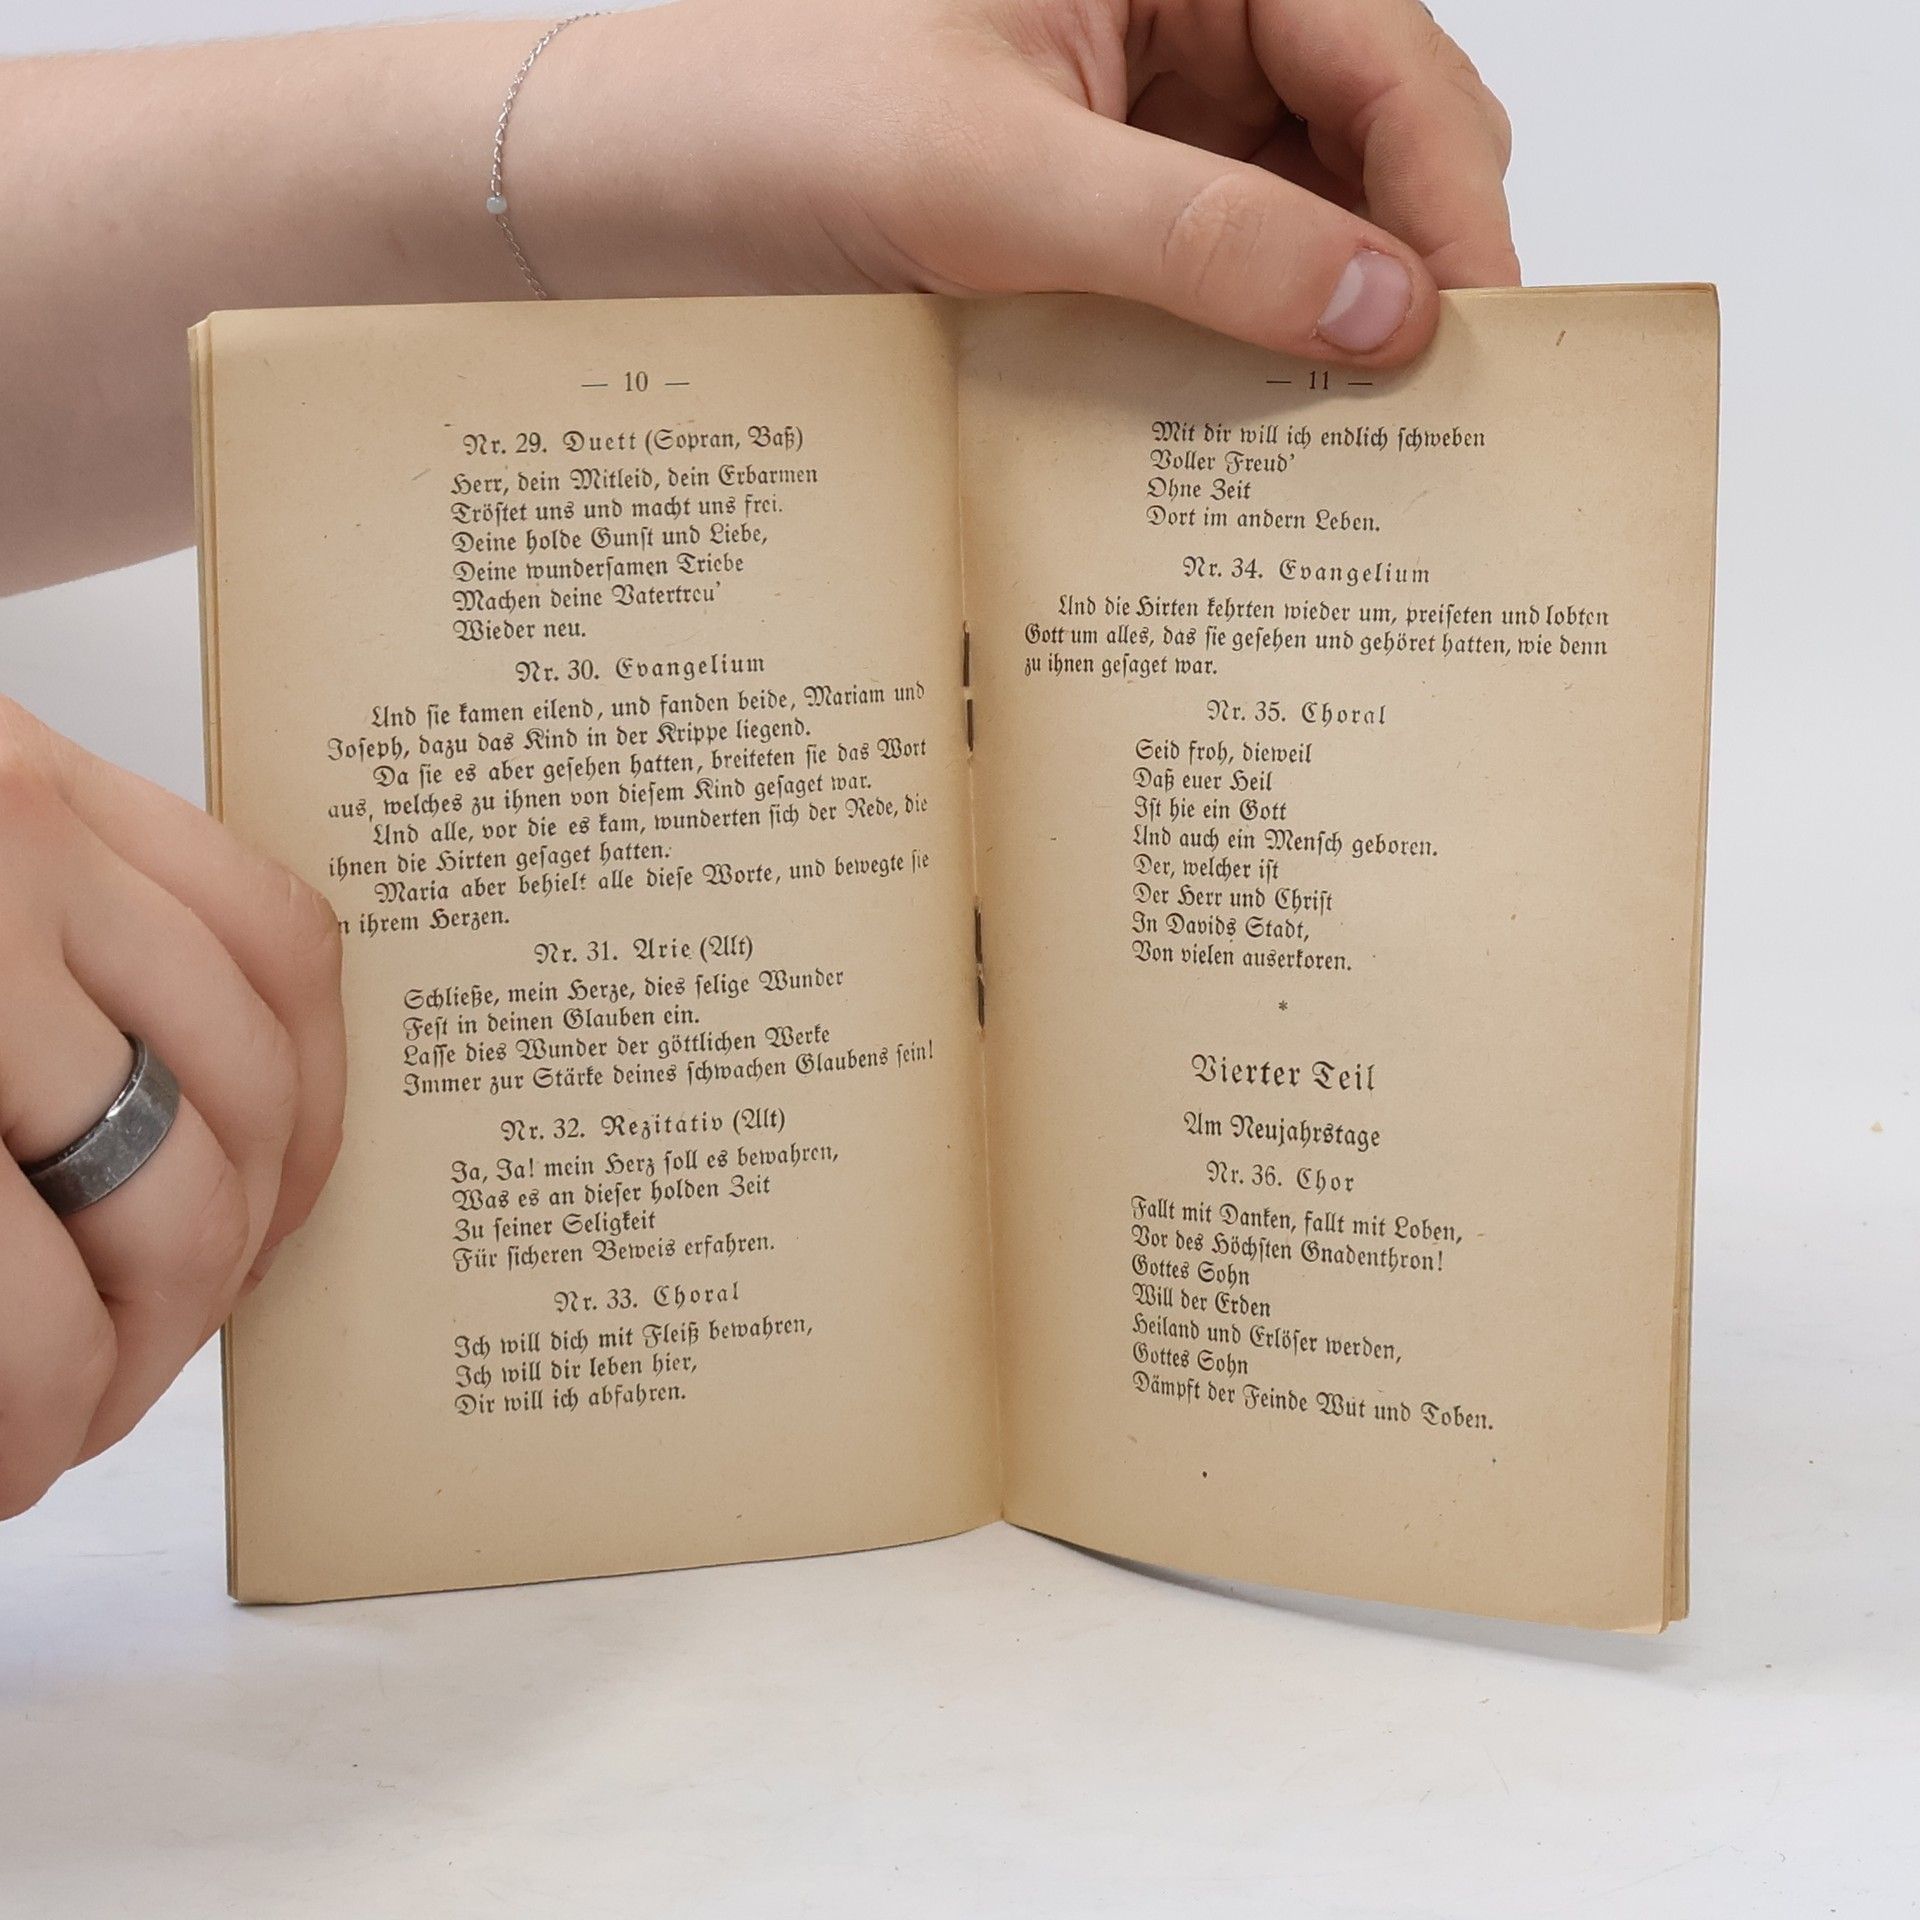 — 10 —
Nr. 29. Duett (Sopran, Baß)
Herr, dein Mitleid, dein Erbarmen
Tröſtet uns und macht uns frei.
Deine holde Gunſt und Liebe,
Deine wunderſamen Triebe
Machen deine Vatertreu’
Wieder neu.
Nr. 30. Evangelium
Und ſie kamen eilend, und fanden beide, Mariam und
Joſeph, dazu das Kind in der Krippe liegend.
Da ſie es aber geſehen hatten, breiteten ſie das Wort
aus, welches zu ihnen von dieſem Kind geſaget war.
Und alle, vor die es kam, wunderten ſich der Rede, die
ihnen die Hirten geſaget hatten.
Maria aber behielt alle dieſe Worte, und bewegte ſie
n ihrem Herzen.
Nr. 31. Arie (Alt)
Schließe, mein Herze, dies ſelige Wunder
Feſt in deinen Glauben ein.
Laſſe dies Wunder der göttlichen Werke
Immer zur Stärke deines ſchwachen Glaubens ſein!
Nr. 32. Rezitativ (Alt)
Ja, Ja! mein Herz ſoll es bewahren,
Was es an dieſer holden Zeit
Zu ſeiner Seligkeit
Für ſicheren Beweis erfahren.
Nr. 33. Choral
Ich will dich mit Fleiß bewahren,
Ich will dir leben hier,
Dir will ich abfahren.
— 11 —
Mit dir will ich endlich ſchweben
Voller Freud’
Ohne Zeit
Dort im andern Leben.
Nr. 34. Evangelium
Und die Hirten kehrten wieder um, preiſeten und lobten
Gott um alles, das ſie geſehen und gehöret hatten, wie denn
zu ihnen geſaget war.
Nr. 35. Choral
Seid froh, dieweil
Daß euer Heil
Iſt hie ein Gott
Und auch ein Menſch geboren.
Der, welcher iſt
Der Herr und Chriſt
In Davids Stadt,
Von vielen auserkoren.
*
Vierter Teil
Am Neujahrstage
Nr. 36. Chor
Fallt mit Danken, fallt mit Loben,
Vor des Höchſten Gnadenthron!
Gottes Sohn
Will der Erden
Heiland und Erlöſer werden,
Gottes Sohn
Dämpft der Feinde Wut und Toben.